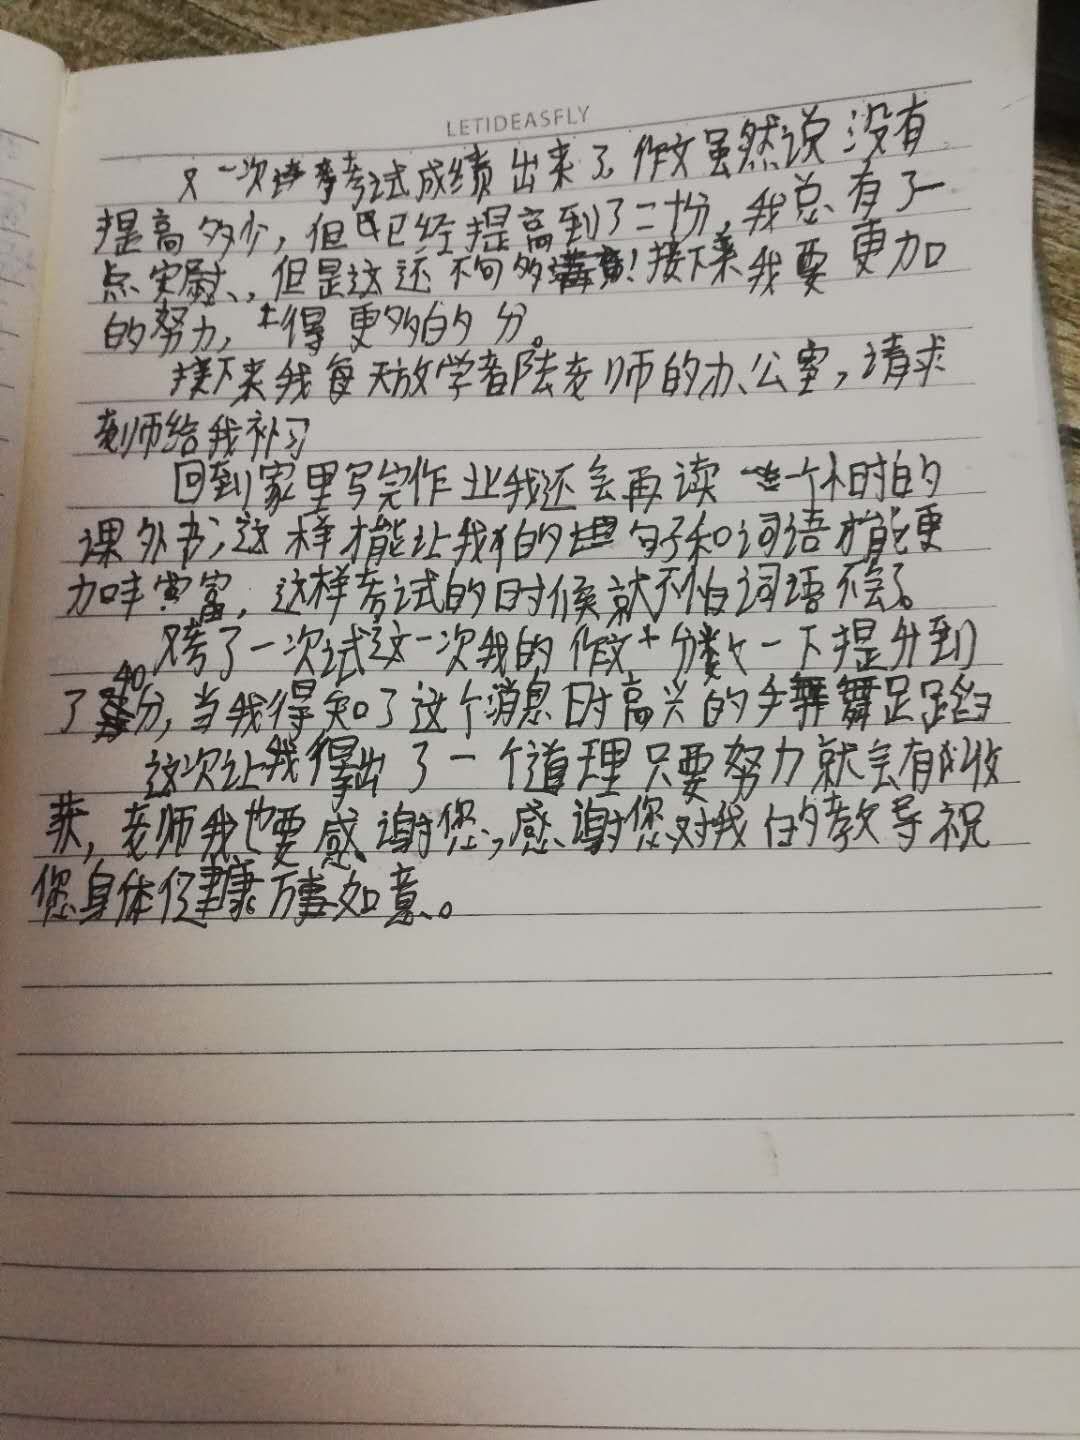 LETIDEASFLY
又一次考试成绩出来了。作文虽然说没有
提高多少,但已经提高到了二十份,我总有了一
点安慰、,但是这还不句多!接下来我要更加
的努力,得更多的分。
接下来我每天放学者陆老师的办公室,请求
老师给我补习
回到家里写完作业我还会再读一个小时的
课外书;这样才能让我的句子和词语才能更
加丰富,这样考试的时候就不怕词语不会了。
又考了一次试这一次我的作文分数一下提升到
了40分,当我得知了这个消息时高兴的手舞足蹈
这次让我得出了一个道理只要努力就会有收
获,老师我也要感谢您,感谢您对我的教导祝
您身体健康万事如意。